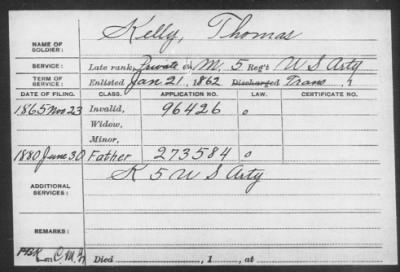 Kelly, Thomas
NAME OF SOLDIER:
SERVICE: Late rank, Private Co. M, 5 Reg't U S Arty
TERM OF SERVICE: Enlisted Jan 21, 1862 Discharged Trans, 1
DATE OF FILING. CLASS. APPLICATION NO. LAW. CERTIFICATE NO.
1865 Nov 23 Invalid, 96426 0
Widow,
Minor,
1880 June 30 Father 273584 0
ADDITIONAL SERVICES: K 5 U S Arty
REMARKS:
Died , 1 , at